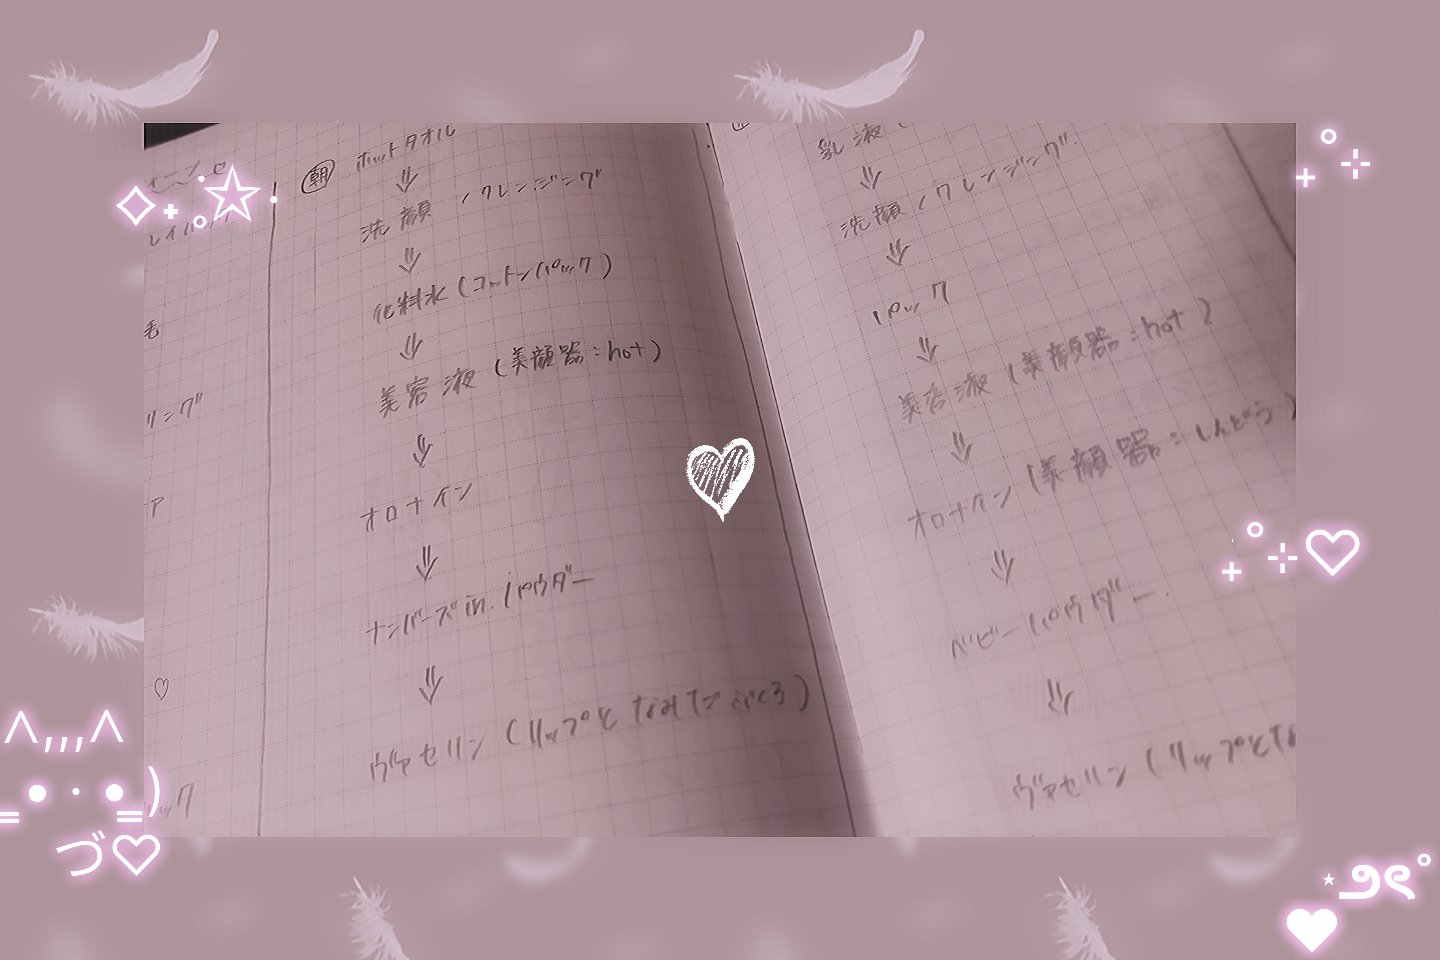 毛
リング
ア
ック
朝 ホットタオル
洗顔 / クレンジング
化粧水 (コットンパック)
美容液 (美顔器:hot)
オロナイン
ナンバーズin.パウダー
ヴァセリン (リップとなみだぶくろ)
乳液 (
洗顔 / クレンジング.
パック
美容液 (美顔器:hot)
オロナイン (美顔器:しんどう)
ベビーパウダー.
ヴァセリン (リップとな
づ♡